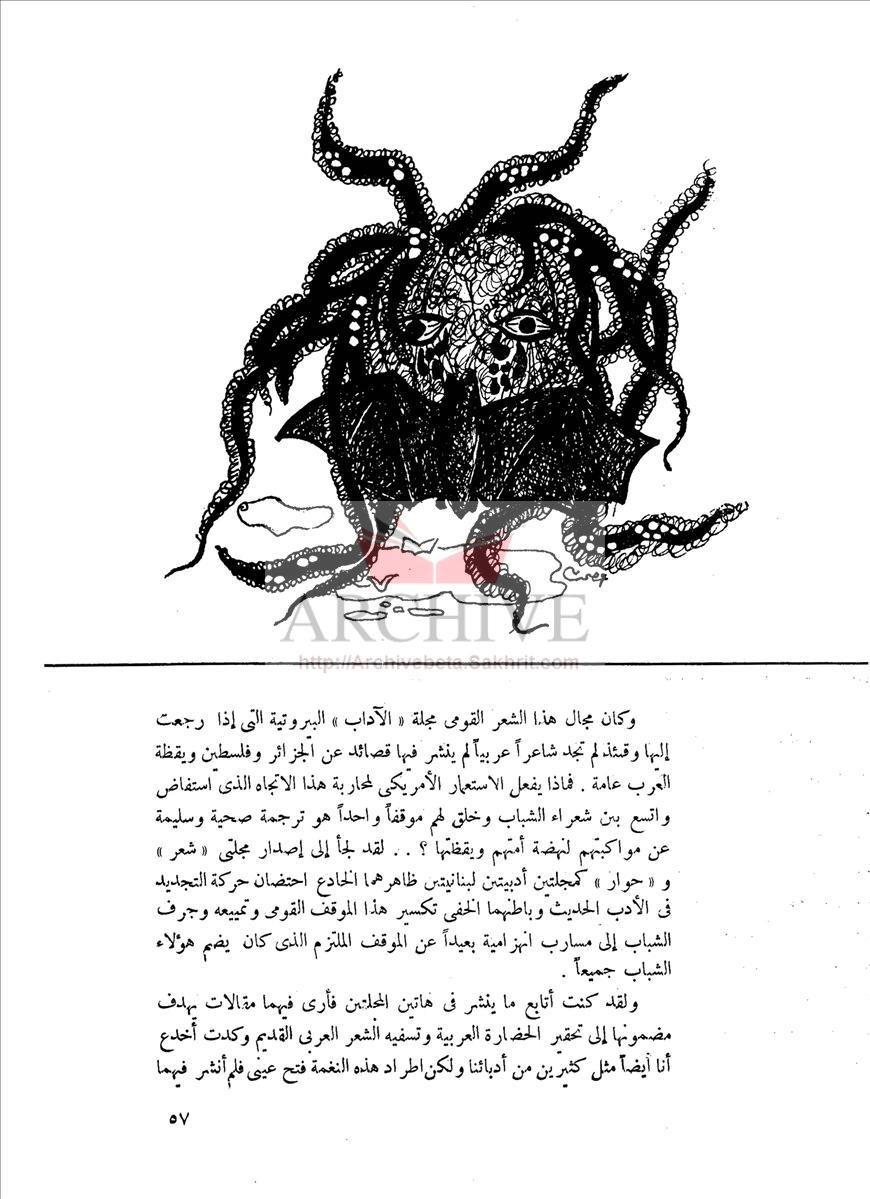 ARCHIVE
http://Archivebeta.Sakhrit.com
وكان مجال هذا الشعر القومى مجلة « الآداب » البيروتية التى إذا رجعت
إليها وقتئذ لم تجد شاعراً عربياً لم ينشر فيها قصائد عن الجزائر وفلسطين ويقظة
العرب عامة . فماذا يفعل الاستعمار الأمريكى لمحاربة هذا الاتجاه الذى استفاض
واتسع بين شعراء الشباب وخلق لهم موقفاً واحداً هو ترجمة صحية وسليمة
عن مواكبتهم لنهضة أمتهم ويقظتها ؟ . . لقد لجأ إلى إصدار مجلتى « شعر »
و « حوار » كمجلتين أدبيتين لبنانيتين ظاهرهما الخادع احتضان حركة التجديد
فى الأدب الحديث وباطنهما الخفى تكسير هذا الموقف القومى وتمييعه وجرف
الشباب إلى مسارب انهزامية بعيداً عن الموقف الملتزم الذى كان يضم هؤلاء
الشباب جميعاً .
ولقد كنت أتابع ما ينشر فى هاتين المجلتين فأرى فيهما مقالات يهدف
مضمونها إلى تحقير الحضارة العربية وتسفيه الشعر العربى القديم وكدت أخدع
أنا أيضاً مثل كثيرين من أدبائنا ولكن اطراد هذه النغمة فتح عينى فلم أنشر فيهما
٥٧